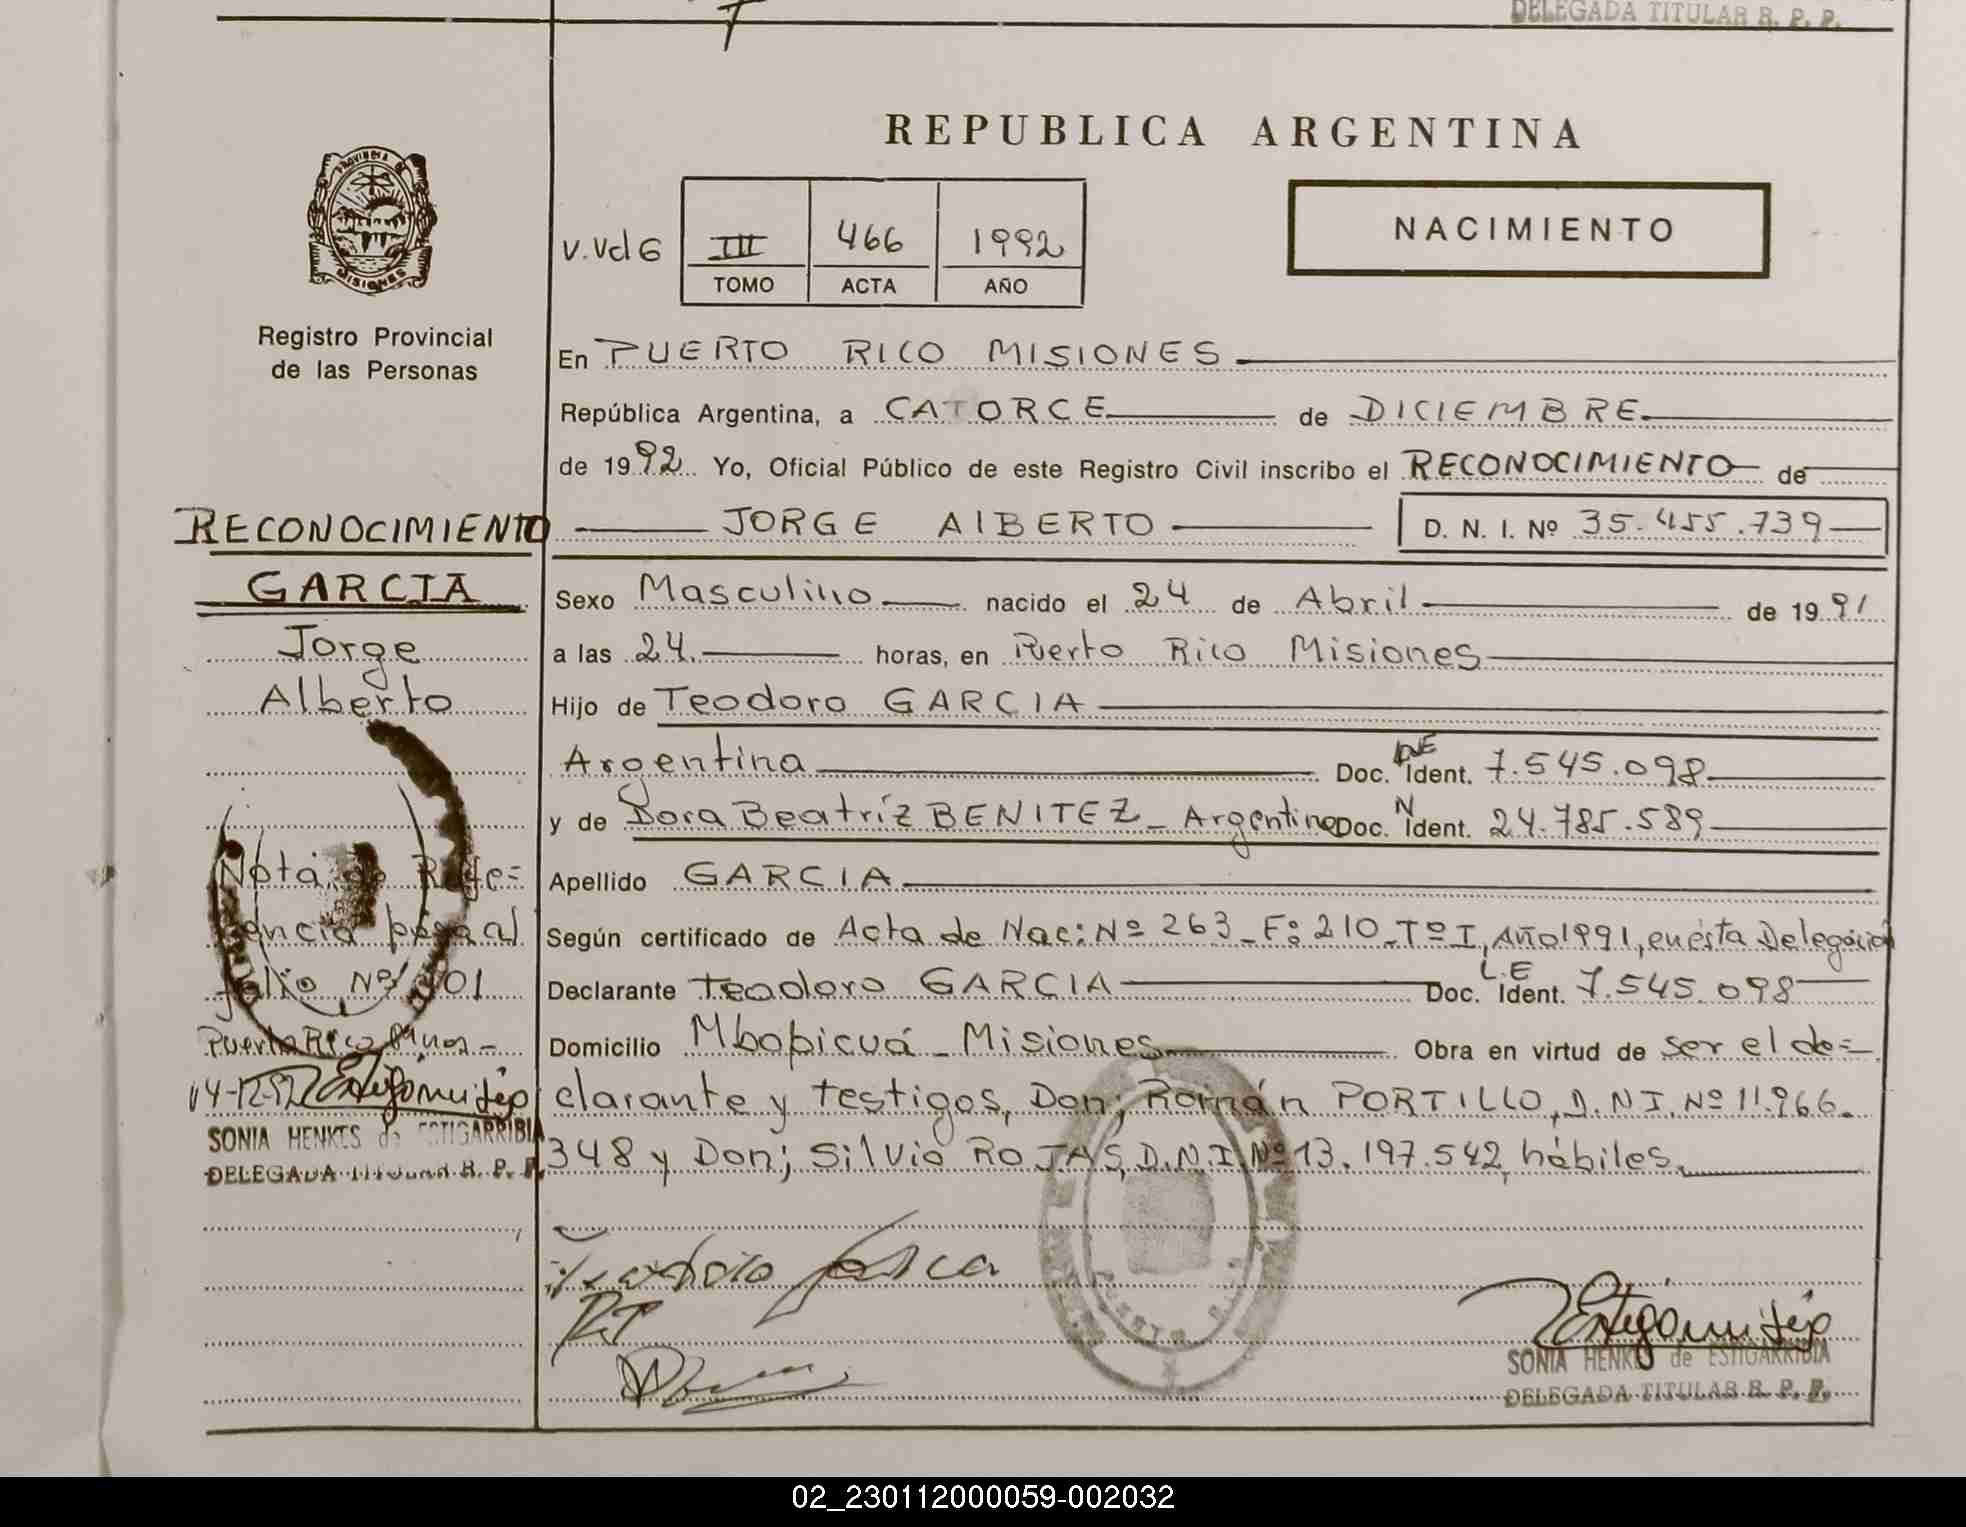 DELEGADA TITULAR R. P. P.
REPUBLICA ARGENTINA
PROVINCIA DE MISIONES
Registro Provincial
de las Personas
V.Vd6 III 466 1992
TOMO ACTA AÑO
NACIMIENTO
En PUERTO RICO MISIONES
República Argentina, a CATORCE de DICIEMBRE
de 1992 Yo, Oficial Público de este Registro Civil inscribo el RECONOCIMIENTO de
JORGE AlBERTO D. N. I. Nº 35.455.739
Sexo Masculino nacido el 24 de Abril de 1991
a las 24 horas, en Puerto Rico Misiones
Hijo de Teodoro GARCIA
Argentina Doc. Ident. 7.545.098
y de Dora Beatríz BENITEZ - Argentina Doc. N Ident. 24.785.589
Apellido GARCIA
Según certificado de Acta de Nac: Nº 263 - Fº 210 - Tº I, Año 1991, en ésta Delegación
Declarante Teodoro GARCIA Doc. L.E Ident. 7.545.098
Domicilio Mbopicuá - Misiones Obra en virtud de ser el de=
clarante y testigos, Don; Román PORTILLO, D.N.I. Nº 11.966.
348 y Don; Silvio ROJAS, D.N.I. Nº 13.197.542, hábiles.
SONIA HENKES de ESTIGARRIBIA
DELEGADA TITULAR R. P. P.
RECONOCIMIENTO
GARCIA
Jorge
Alberto
Nota de Refe=
rencia pasa al
folio Nº
Puerto Rico Mnes -
14-12-92
SONIA HENKES de ESTIGARRIBIA
DELEGADA TITULAR R. P. P.
02_230112000059-002032